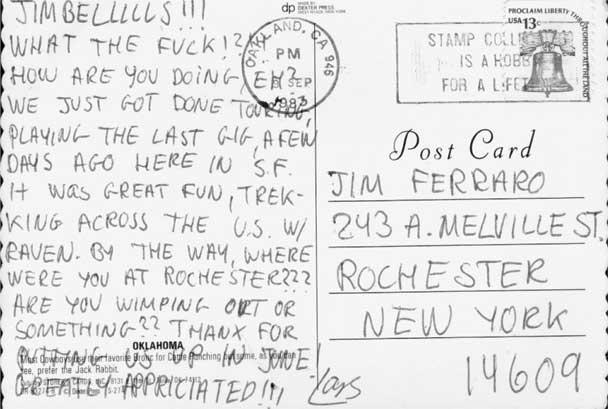 JIMBELLLLLS!!!
WHAT THE FUCK!?!
HOW ARE YOU DOING EH?
WE JUST GOT DONE TOURING,
PLAYING THE LAST GIG, A FEW
DAYS AGO HERE IN S.F.
IT WAS GREAT FUN, TREK-
KING ACROSS THE U.S. W/
RAVEN. BY THE WAY, WHERE
WERE YOU AT ROCHESTER???
ARE YOU WIMPING OUT OR
SOMETHING?? THANX FOR
PUTTING US UP IN JUNE
GREATLY APPRICIATED!!!
Lars
OKLAHOMA
Most Cowboys use their favorite Bronc for Cattle Ranching but some, as you can
see, prefer the Jack Rabbit.
MADE BY
dp DEXTER PRESS
WEST NYACK, NEW YORK
OAKLAND, CA 946
PM
SEP
1983
STAMP COLL
IS A HOBB
FOR A LIFET
PROCLAIM LIBERTY THROUGHOUT ALL THE LAND
USA 13c
Post Card
JIM FERRARO
243 A. MELVILLE ST.
ROCHESTER
NEW YORK
14609